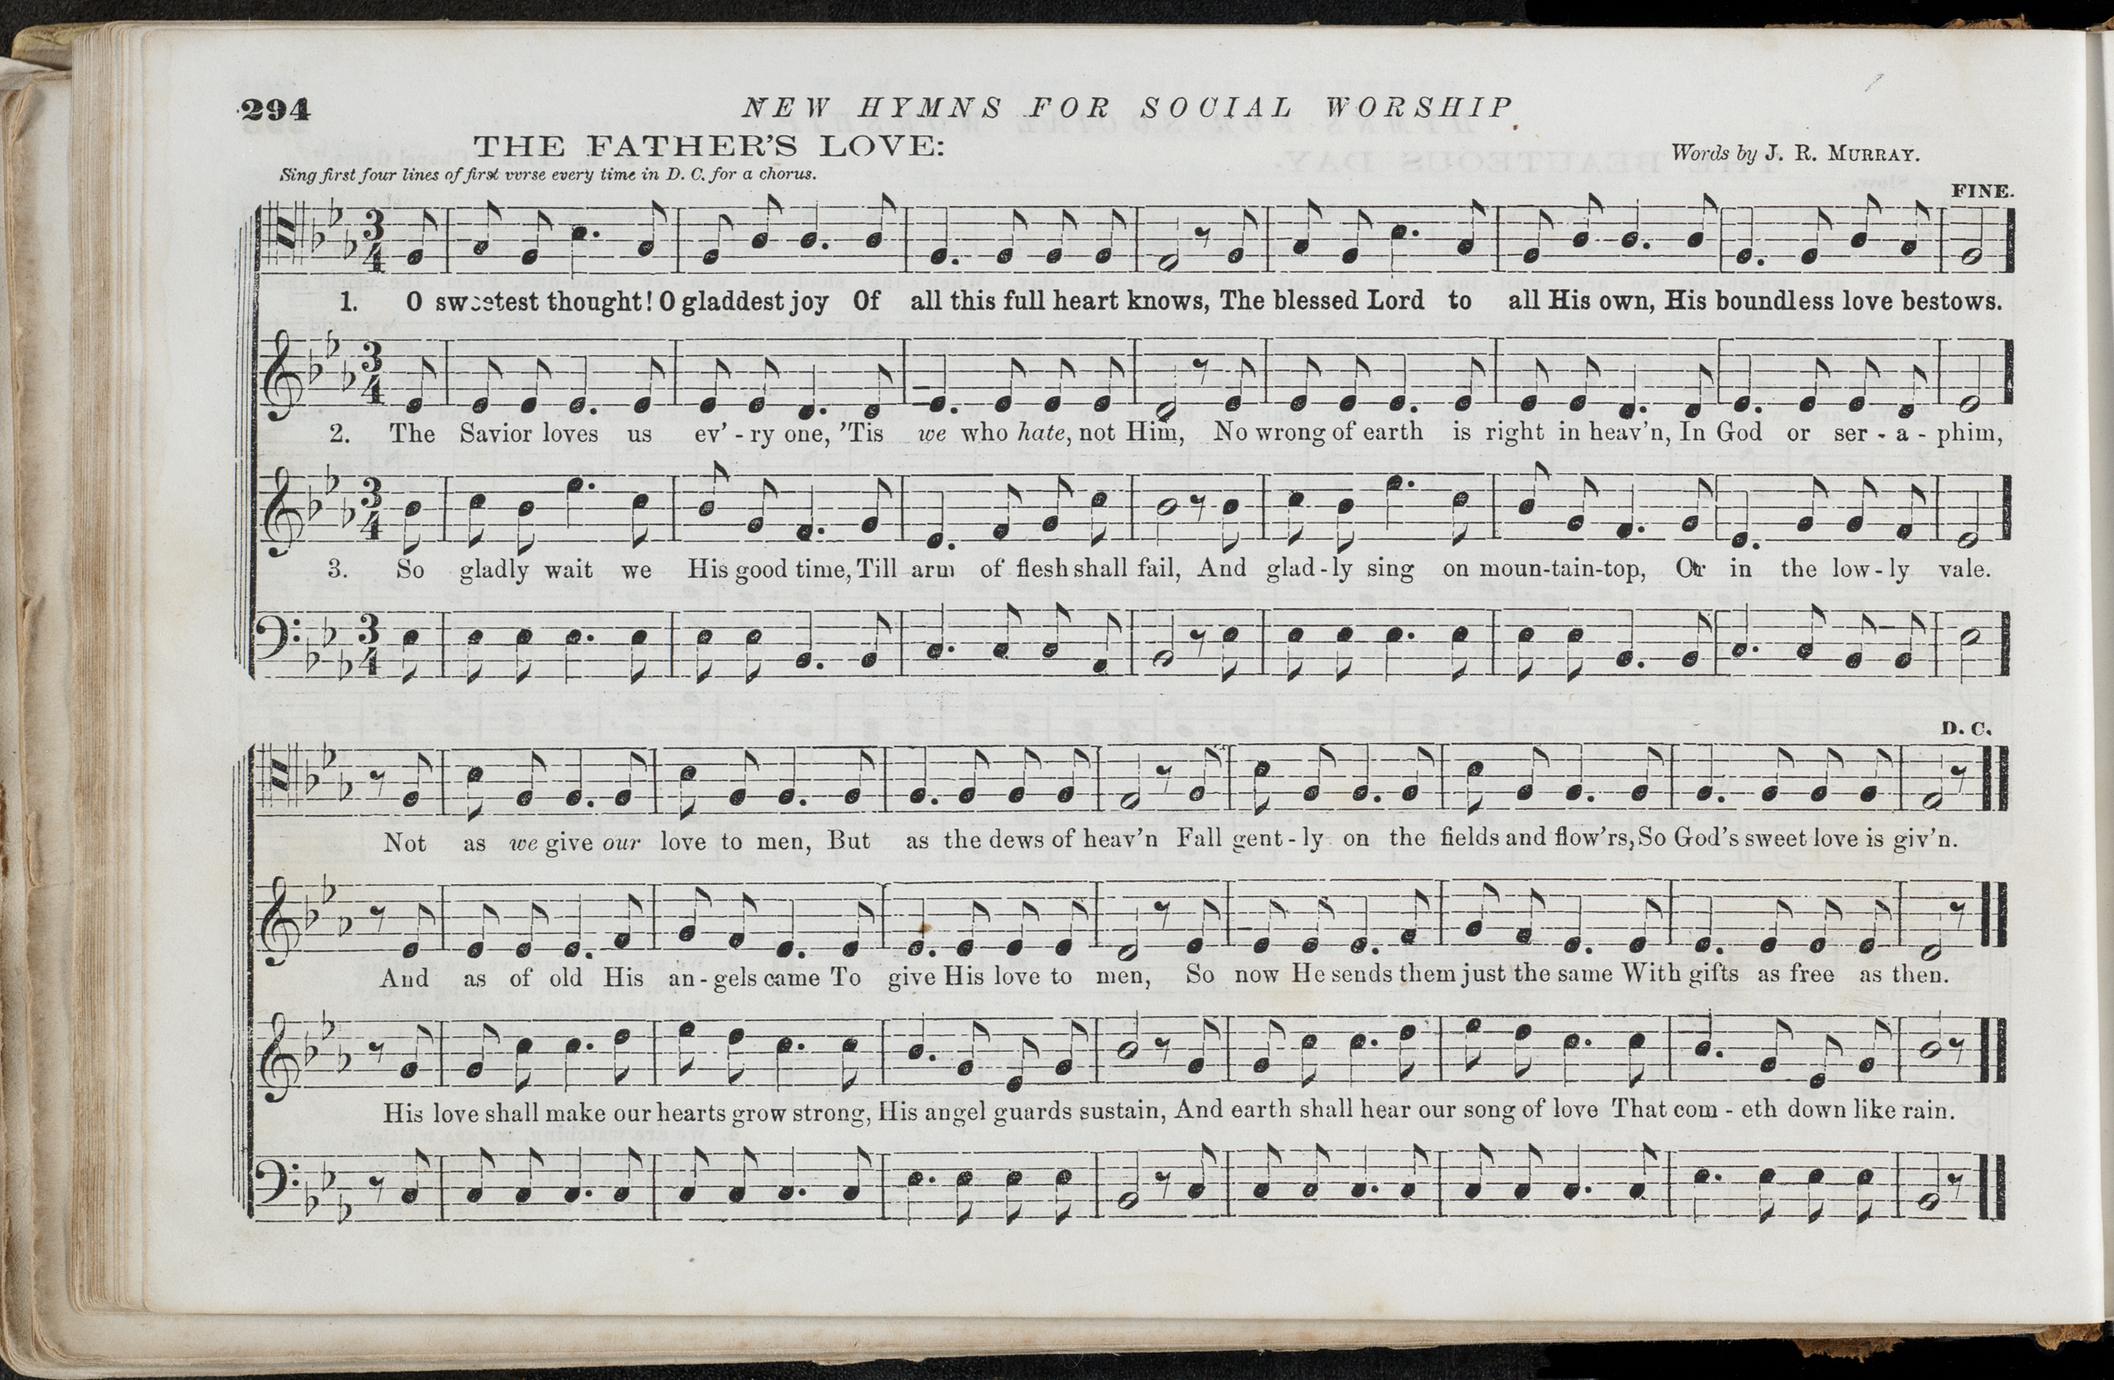 294
NEW HYMNS FOR SOCIAL WORSHIP
THE FATHER'S LOVE:
Words by J. R. MURRAY.
Sing first four lines of first vvrse every time in D. C. for a chorus.
FINE.
3
4
1. O sweetest thought! O gladdest joy Of all this full heart knows, The blessed Lord to all His own, His boundless love bestows.
3
4
2. The Savior loves us ev' - ry one, 'Tis we who hate, not Him, No wrong of earth is right in heav'n, In God or ser - a - phim,
3
4
3. So gladly wait we His good time, Till arm of flesh shall fail, And glad - ly sing on moun-tain-top, Or in the low - ly vale.
3
4
D. C.
Not as we give our love to men, But as the dews of heav'n Fall gent - ly on the fields and flow'rs, So God's sweet love is giv'n.
And as of old His an - gels came To give His love to men, So now He sends them just the same With gifts as free as then.
His love shall make our hearts grow strong, His angel guards sustain, And earth shall hear our song of love That com - eth down like rain.